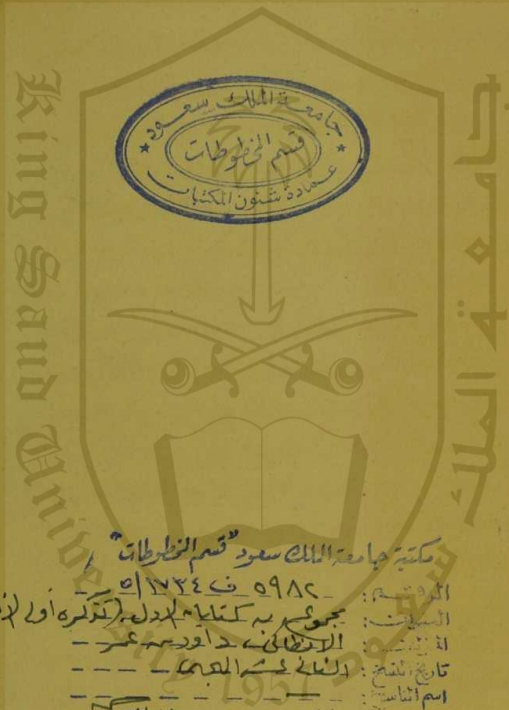 جامعة الملك سعود
قسم المخطوطات
عمادة شئون المكتبات
King Saud University
جامعة الملك سعود
1957
مكتبة جامعة الملك سعود "قسم المخطوطات"
الرقم: ٥٩٨٢ ف ١٧٣٤/٥
العنوان: مجموع به كتابان الاول (تذكرة أولي
المؤلف: الانطاكي، داود بن عمر
تاريخ النسخ: الثاني عشر الهجري
اسم الناسخ: